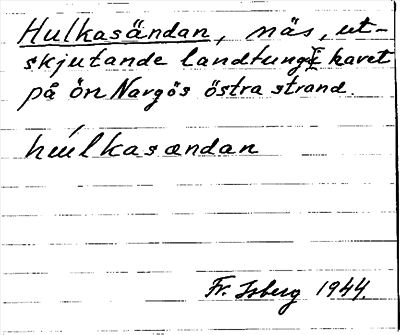 Hulkasändan, näs, ut-
skjutande landtunga i havet
på ön Nargös östra strand.
húlkasandan
Fr. Isberg 1944.